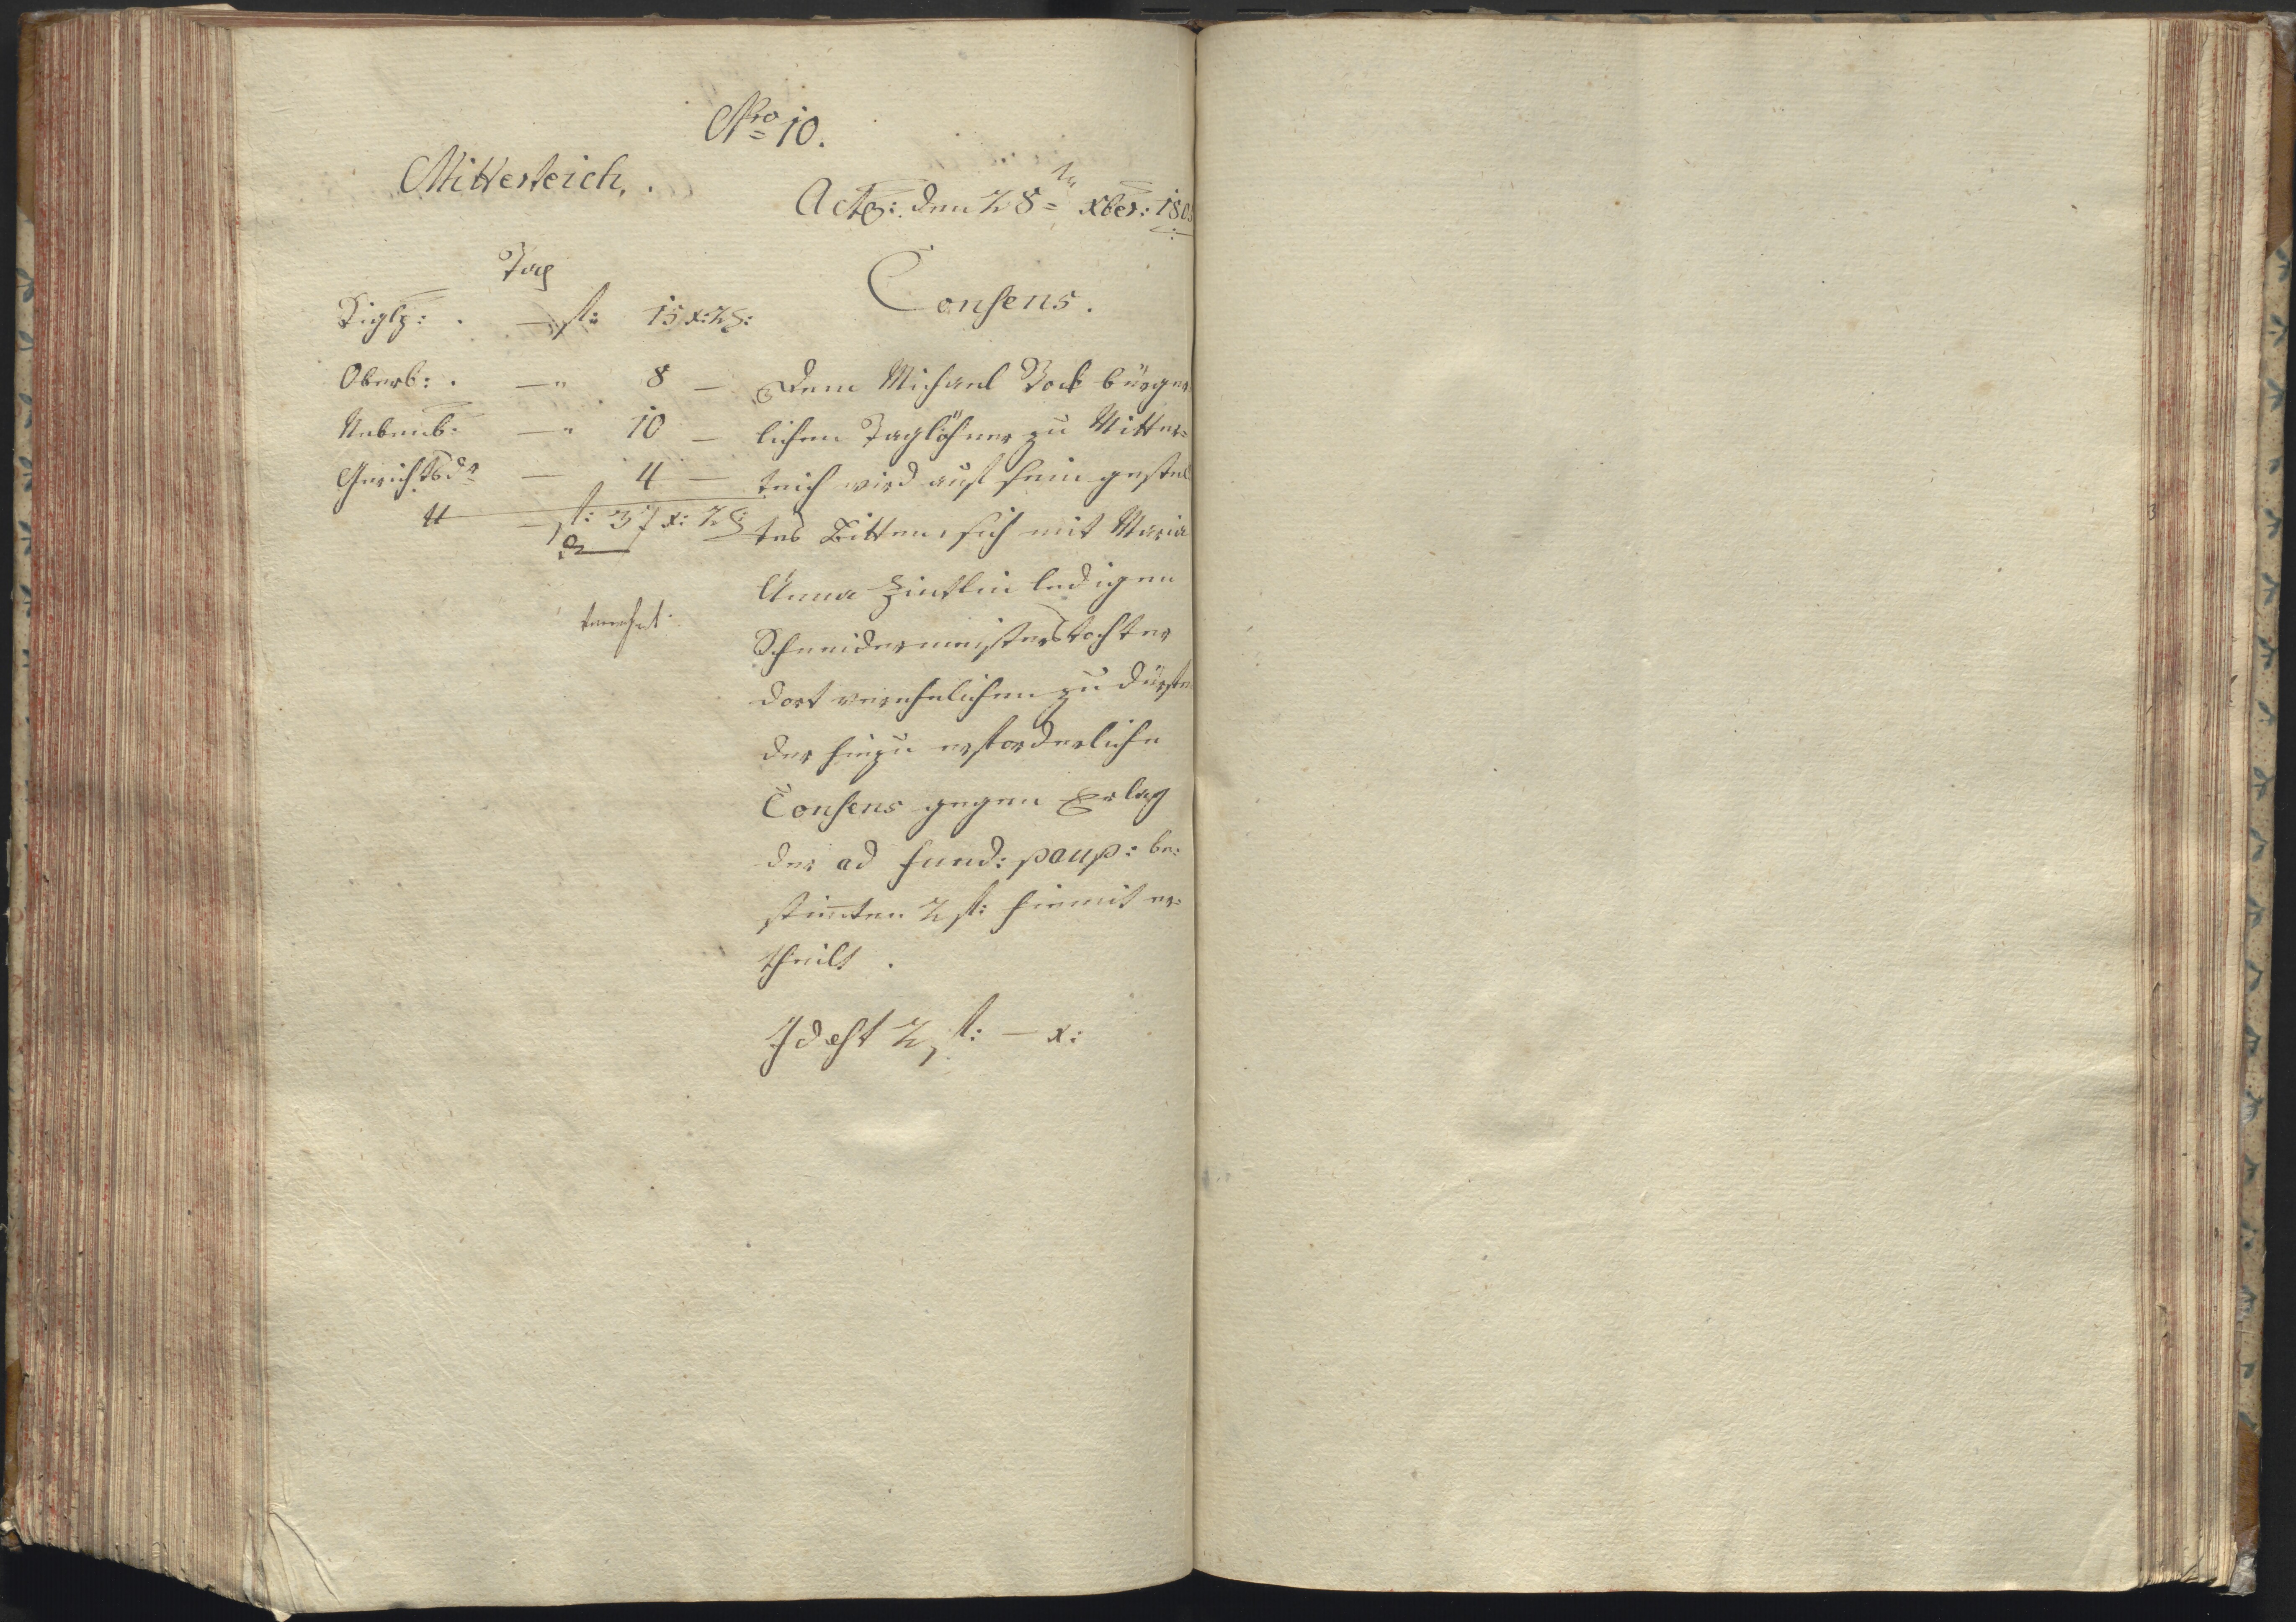 Nro 10.
Mitterteich.
Acto: den 28ten xber: 180
Tax
Siglg: . — fl: 15 x: 2 ₰:
Oberb: . — " 8 —
Nebenb: — " 10 —
Gerichtsdr — 4 —
— fl: 37 x: 2 ₰:
Consens.
Dem Michael Bock bürger
lichen Taglöhner zu Mitter=
teich wird auf sein gestell
tes Bitten, sich mit Maria
Anna Zintlin ledigen
Schneidermeisterstochter
dort verehelichen zu dürfen
der hiezu erforderliche
Consens gegen Erlag
der ad fund: paup: be=
stimten 2 fl: hiemit er=
theilt .
Idest 2 fl: — x: